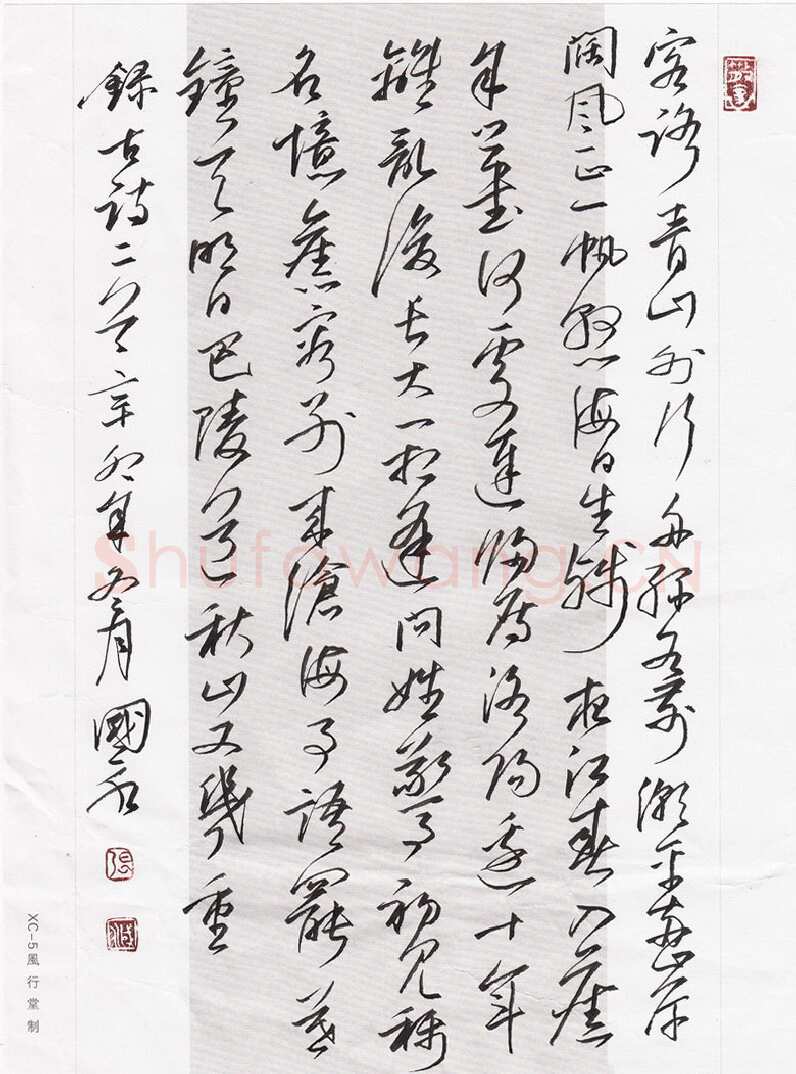 客路青山外行舟綠水前潮平兩岸
闊風正一帆懸海日生殘夜江春入舊
年鄉書何處達歸雁洛陽邊十年
離亂後長大一相逢問姓驚初見稱
名憶舊容別來滄海事語罷暮
鐘天明日巴陵道秋山又幾重
錄古詩二首辛卯年五月國
張
XC-5風行堂制
Shufawang.CN